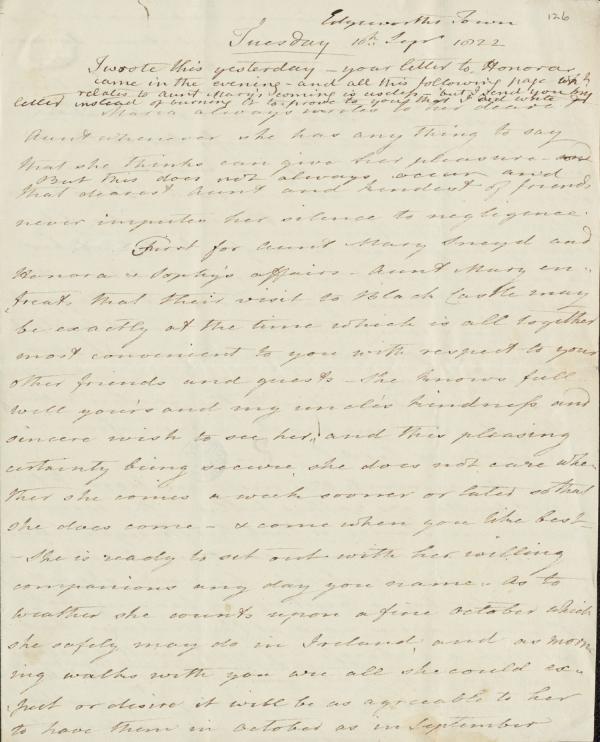 126
Edgeworths Town
Tuesday 16th Sepr 1822
I wrote this yesterday - your letter to Honora
came in the evening - and all this following page wh
relates to Aunt Mary's coming is useless - but I send you my
letter instead of burning it to prove to you that I did write
Maria always writes to her dear
Aunt whenever she has any thing to say
that she thinks can give her pleasure -
But this does not always occur and
that dearest Aunt and kindest of friends
never imputes her silence to negligence.
First for Aunt Mary Sneyd and
Honora & Sophy's affairs - Aunt Mary en-
treats that their visit to Black Castle may
be exactly at the time which is all together
most convenient to you with respect to your
other friends and guests - She knows full
well your's and my uncle's kindness and
sincere wish to see her, and this pleasing
certainty being secure she does not care whe-
ther she comes a week sooner or later so that
she does come - & come when you like best -
- She is ready to set out with her willing
companions any day you name. As to
weather she counts upon a fine October which
she safely may do in Ireland and as morn-
ing walks with you are all she could ex-
pect or desire it will be as agreeable to her
to have them in October as in September